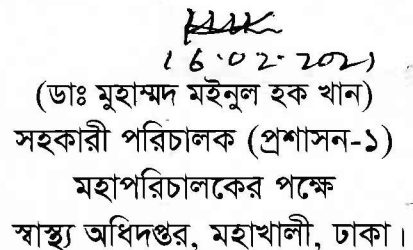 16.02.2021
(ডাঃ মুহাম্মদ মইনুল হক খান)
সহকারী পরিচালক (প্রশাসন-১)
মহাপরিচালকের পক্ষে
স্বাস্থ্য অধিদপ্তর, মহাখালী, ঢাকা।